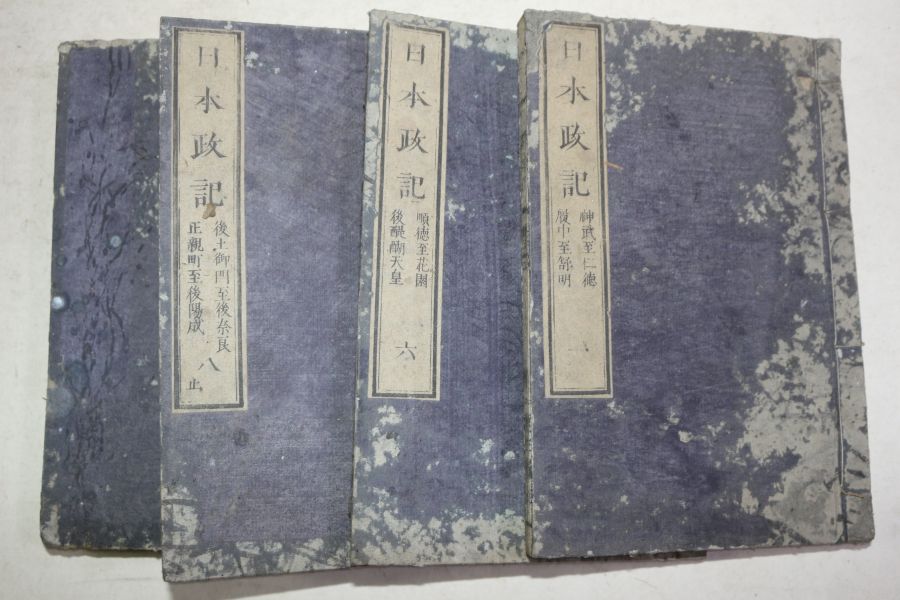 日本政記
神武至仁徳
履中至舒明
一
日本政記
順徳至花園
後醍醐天皇
六
日本政記
後土御門至後奈良
正親町至後陽成
八
止